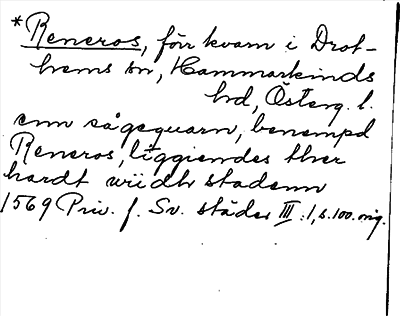 *Reneros, förr kvarn i Drot-
hems sn, Hammarkinds
hd, Österg. l.
enn sågequarn, benempd
Reneros, liggiendes ther
hardt wiidh stadenn
1569 Priv. f. Sv. städer III:1, s. 100. orig.